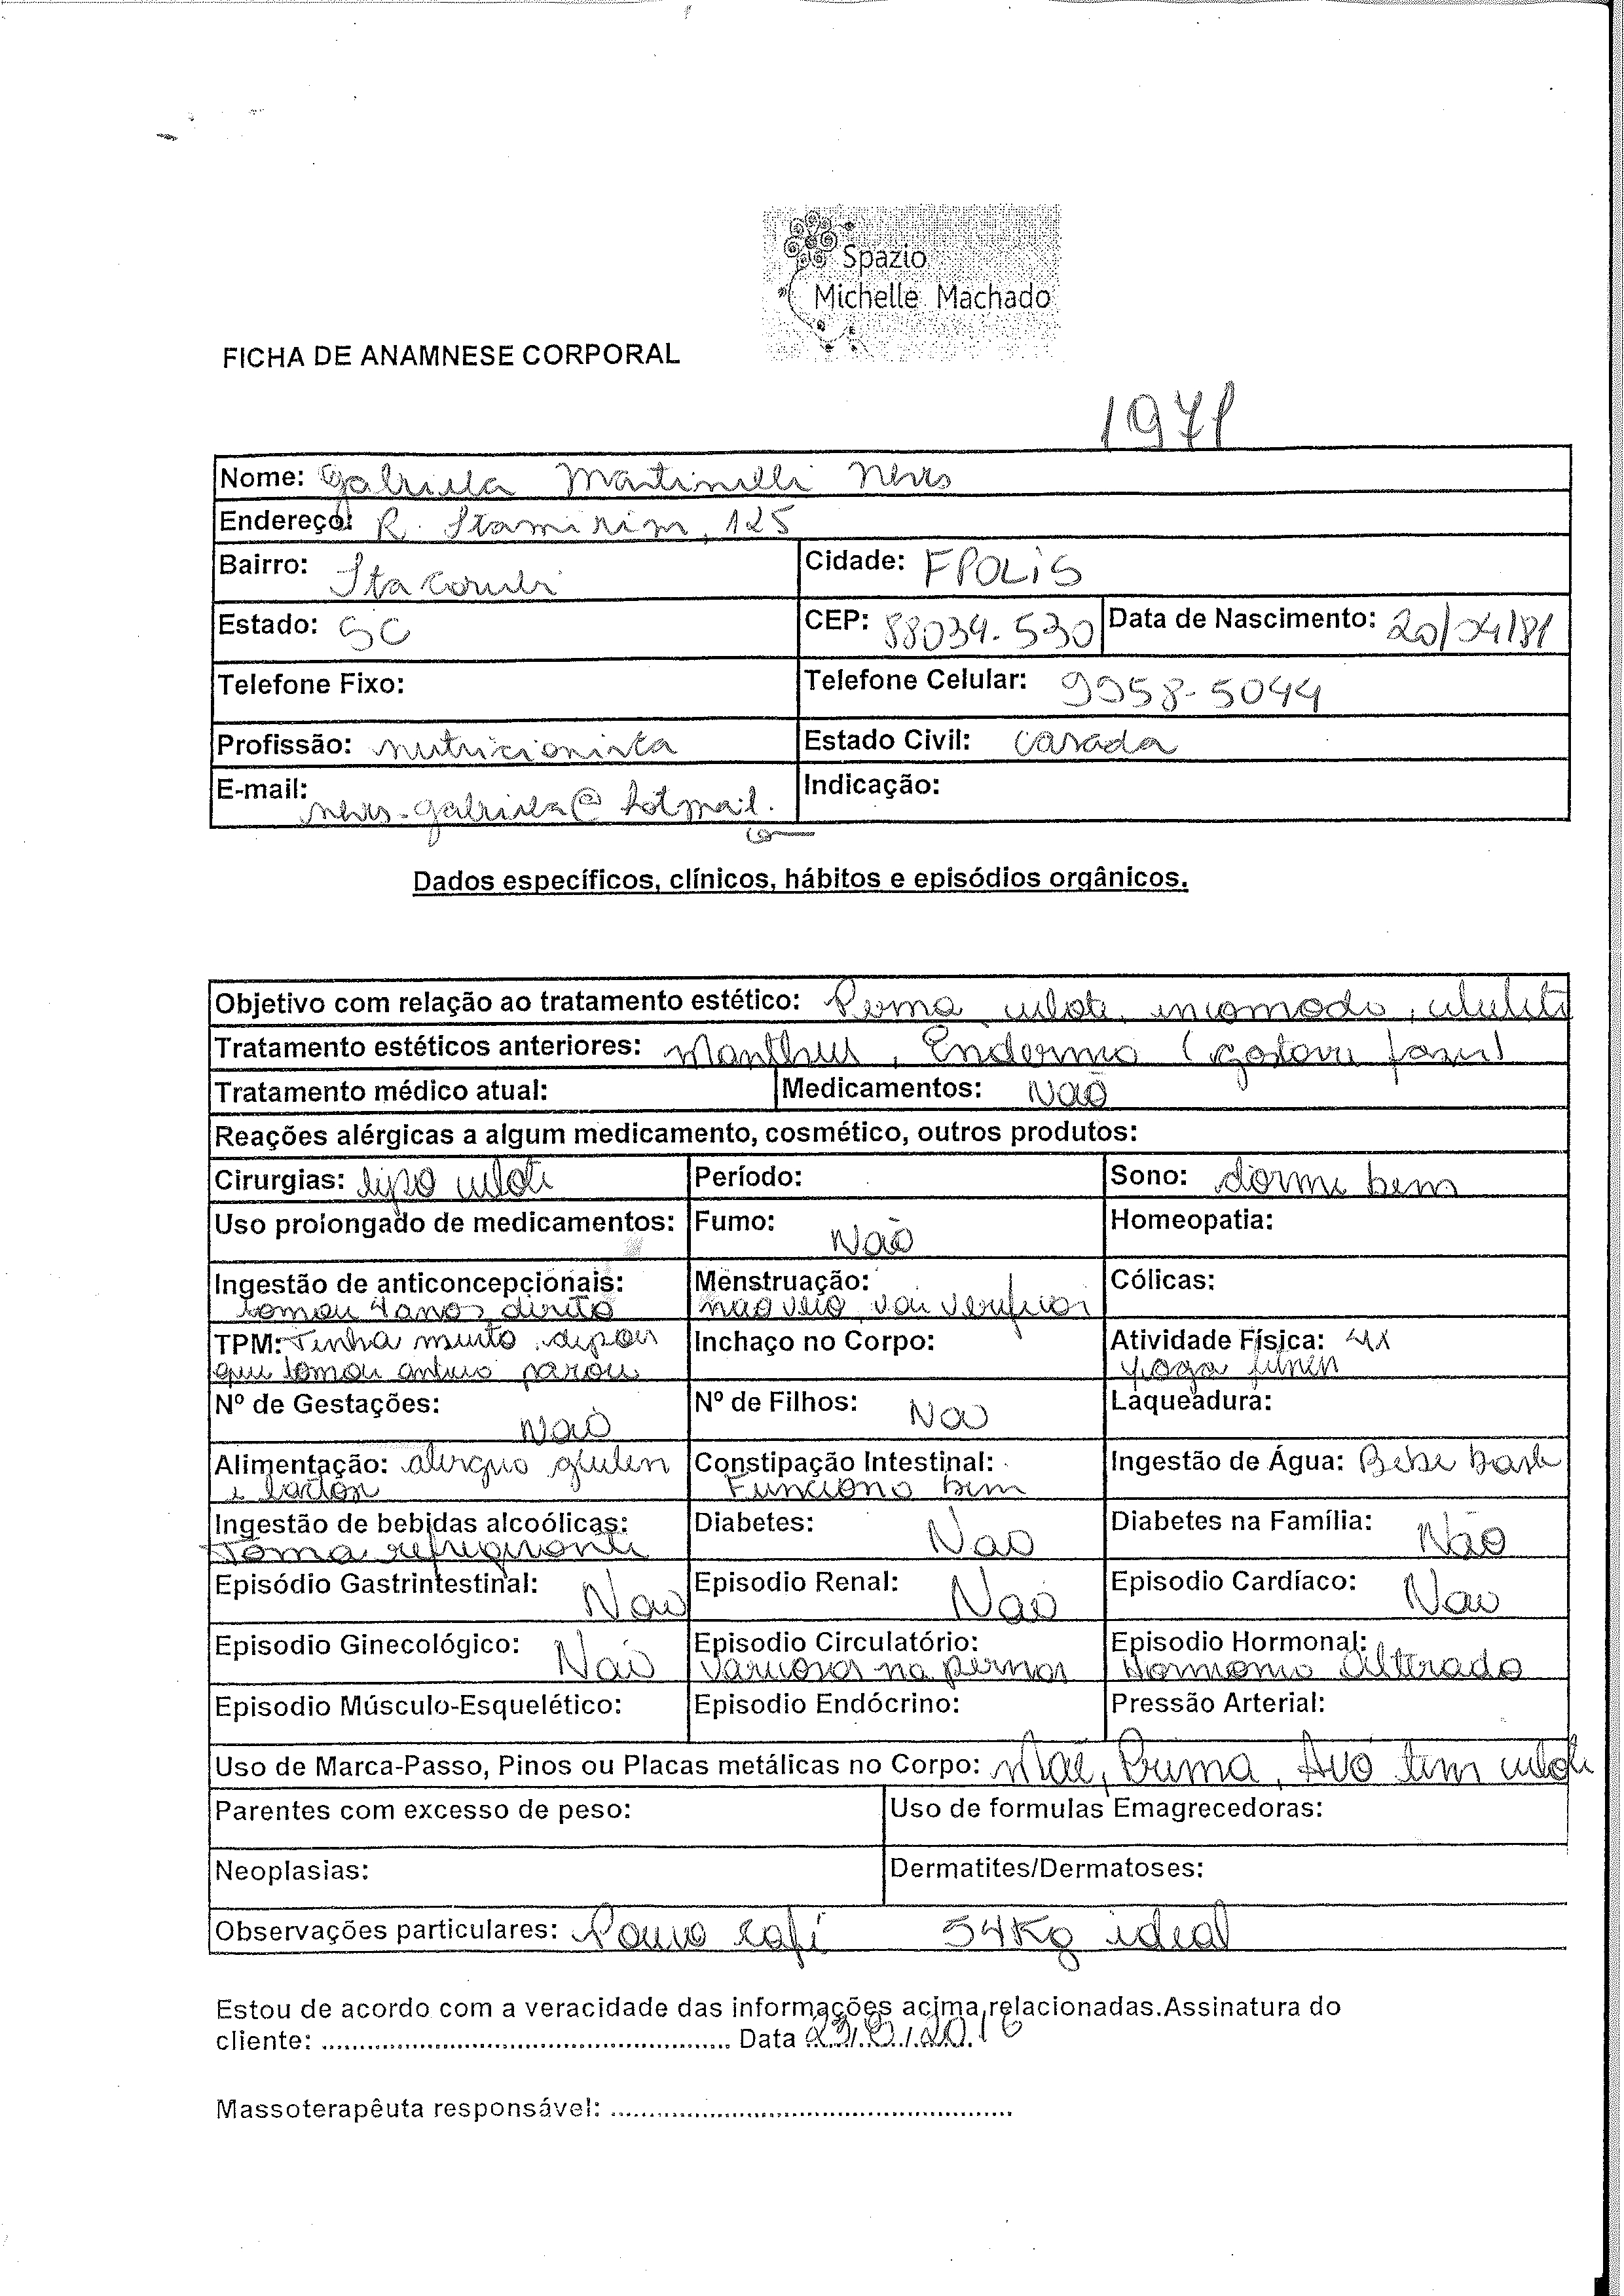 Spazio
Michelle Machado
FICHA DE ANAMNESE CORPORAL
1971
Nome: Gabriela Martinelli Neves
Endereço: R. Itamirim, 125
Bairro: Itacorubi Cidade: FPOLIS
Estado: SC CEP: 88034-530 Data de Nascimento: 20/04/81
Telefone Fixo: Telefone Celular: 9958-5044
Profissão: nutricionista Estado Civil: casada
E-mail: neves-gabriela@hotmail. Indicação:
com
Dados específicos, clínicos, hábitos e episódios orgânicos.
Objetivo com relação ao tratamento estético: Perna culote incomoda, celulite
Tratamento estéticos anteriores: Manthus, Endermo (gostava fazer)
Tratamento médico atual: Medicamentos: Não
Reações alérgicas a algum medicamento, cosmético, outros produtos:
Cirurgias: lipo culote Período: Sono: dorme bem
Uso prolongado de medicamentos: Fumo: Não Homeopatia:
Ingestão de anticoncepcionais: Menstruação: Cólicas:
tomou 4 anos direto não veio, vai verificar
TPM: Tinha muito depois Inchaço no Corpo: Atividade Física: 4x
que tomou antico parou yoga
Nº de Gestações: Não Nº de Filhos: Não Laqueadura:
Alimentação: alergia gluten Constipação Intestinal: Ingestão de Água: Bebe bast
e lacton Funciona bem
Ingestão de bebidas alcoólicas: Diabetes: Não Diabetes na Família: Não
Toma refrigerante
Episódio Gastrintestinal: Não Episodio Renal: Não Episodio Cardíaco: Não
Episodio Ginecológico: Não Episodio Circulatório: Episodio Hormonal:
varicosa na pernas Hormonio Alterado
Episodio Músculo-Esquelético: Episodio Endócrino: Pressão Arterial:
Uso de Marca-Passo, Pinos ou Placas metálicas no Corpo: Mãe, Avó tem culote
Parentes com excesso de peso: Uso de formulas Emagrecedoras:
Neoplasias: Dermatites/Dermatoses:
Observações particulares: Pouco café 54Kg ideal
Estou de acordo com a veracidade das informações acima,relacionadas.Assinatura do
cliente: ........................................................ Data 23/8/2016
Massoterapêuta responsável: ........................................................